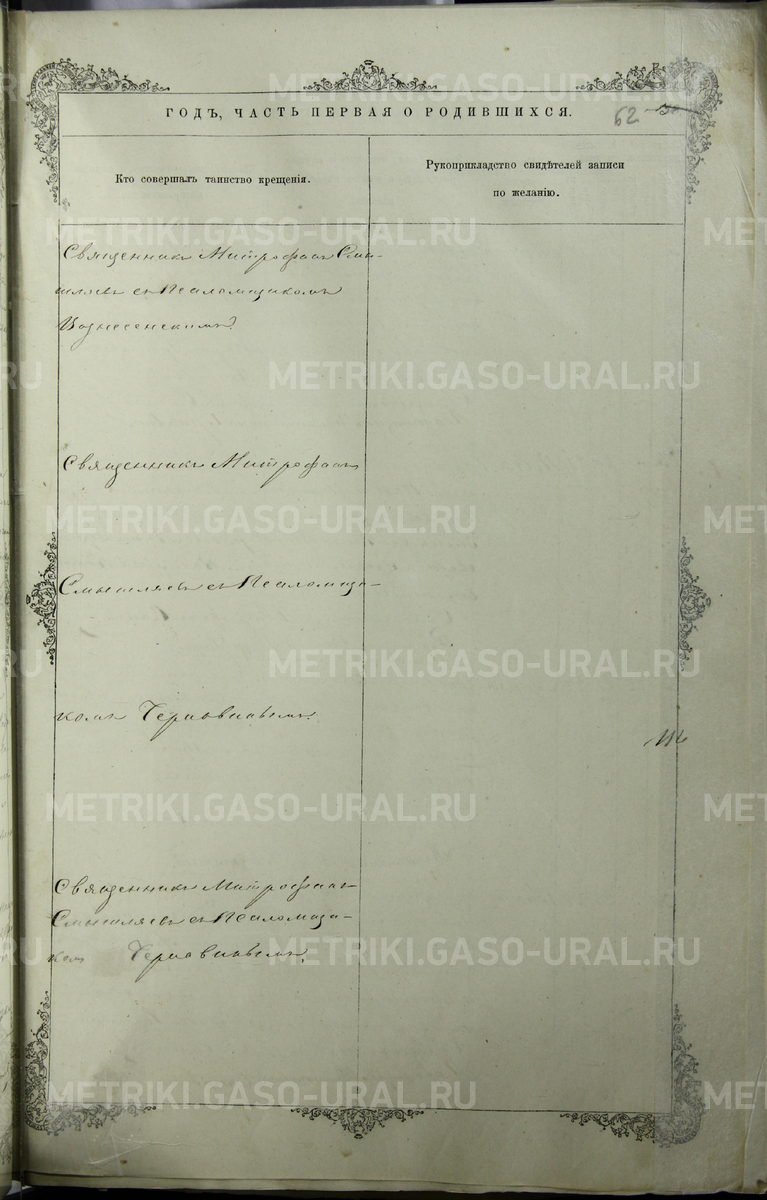 ГОДЪ, ЧАСТЬ ПЕРВАЯ О РОДИВШИХСЯ.
62
Кто совершалъ таинство крещенія.
Рукоприкладство свидѣтелей записи
по желанію.
Священникъ Митрофанъ Смы-
шляевъ съ Псаломщикомъ
Вознесенскимъ.
Священникъ Митрофанъ
Смышляевъ съ Псаломщи-
комъ
Священникъ Митрофанъ
Смышляевъ съ Псаломщи-
комъ
METRIKI.GASO-URAL.RU